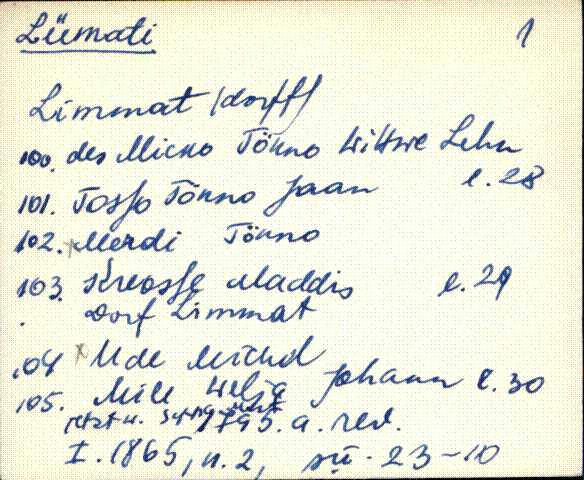 Lümati 1
Limmat (dorff)
100. des Micko Tönno Wittwe Lehn
101. Tosso Tönno Jaan l. 28
102. x Merdi Tönno
103. Kreosse Maddis l. 29
Dorf Limmat
104 x Ude Michel
105. Mill Johann l. 30
1795. a. rev.
I. 1865, n. 2, sü. 23-10